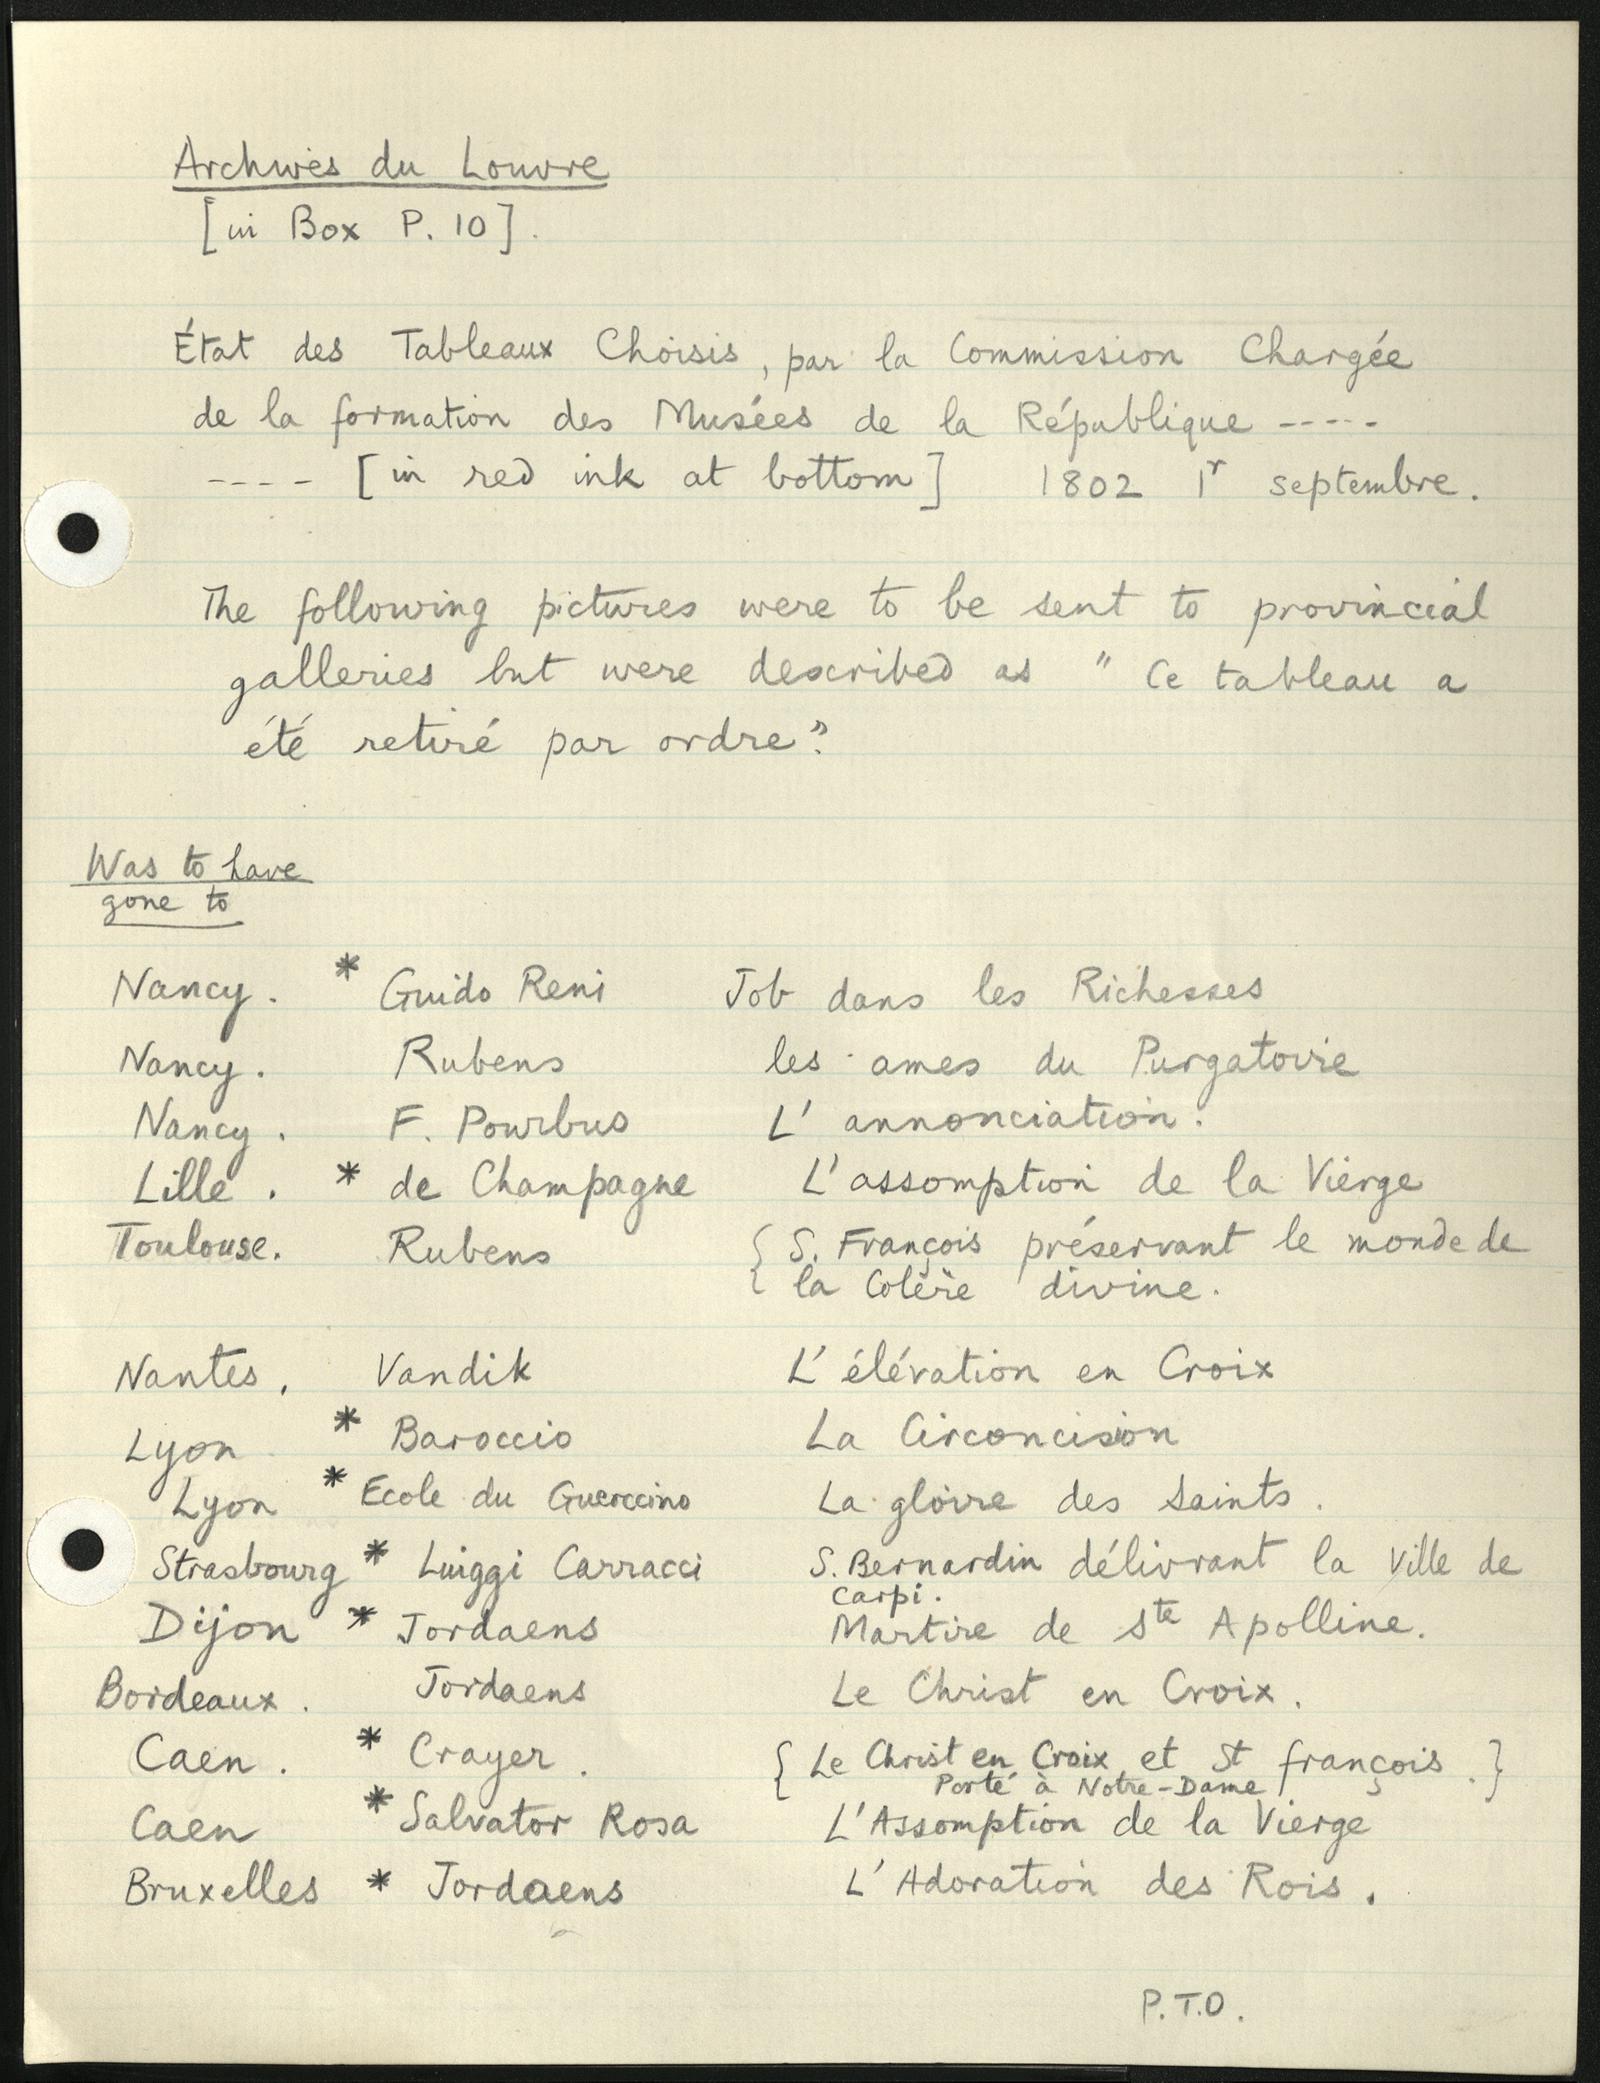 Archives du Louvre
[in Box P. 10].
État des Tableaux Choisis, par la Commission Chargée
de la formation des Musées de la République -----
---- [in red ink at bottom] 1802 1r septembre.
The following pictures were to be sent to provincial
galleries but were described as "Ce tableau a
été retiré par ordre".
Was to have
gone to
Nancy. * Guido Reni Job dans les Richesses
Nancy. Rubens les ames du Purgatoire
Nancy. F. Pourbus L'annonciation.
Lille. * de Champagne L'assomption de la Vierge
Toulouse. Rubens { S. François préservant le monde de
la Colère divine.
Nantes. Vandik L'élévation en Croix
Lyon * Baroccio La Circoncision
Lyon * Ecole du Guerccino La gloire des Saints.
Strasbourg * Luiggi Carracci S. Bernardin délivrant la Ville de
Carpi.
Dijon * Jordaens Martire de Ste Apolline.
Bordeaux. Jordaens Le Christ en Croix.
Caen. * Crayer. { Le Christ en Croix et St françois. }
Porté à Notre-Dame
Caen * Salvator Rosa L'Assomption de la Vierge
Bruxelles * Jordaens L'Adoration des Rois.
P.T.O.